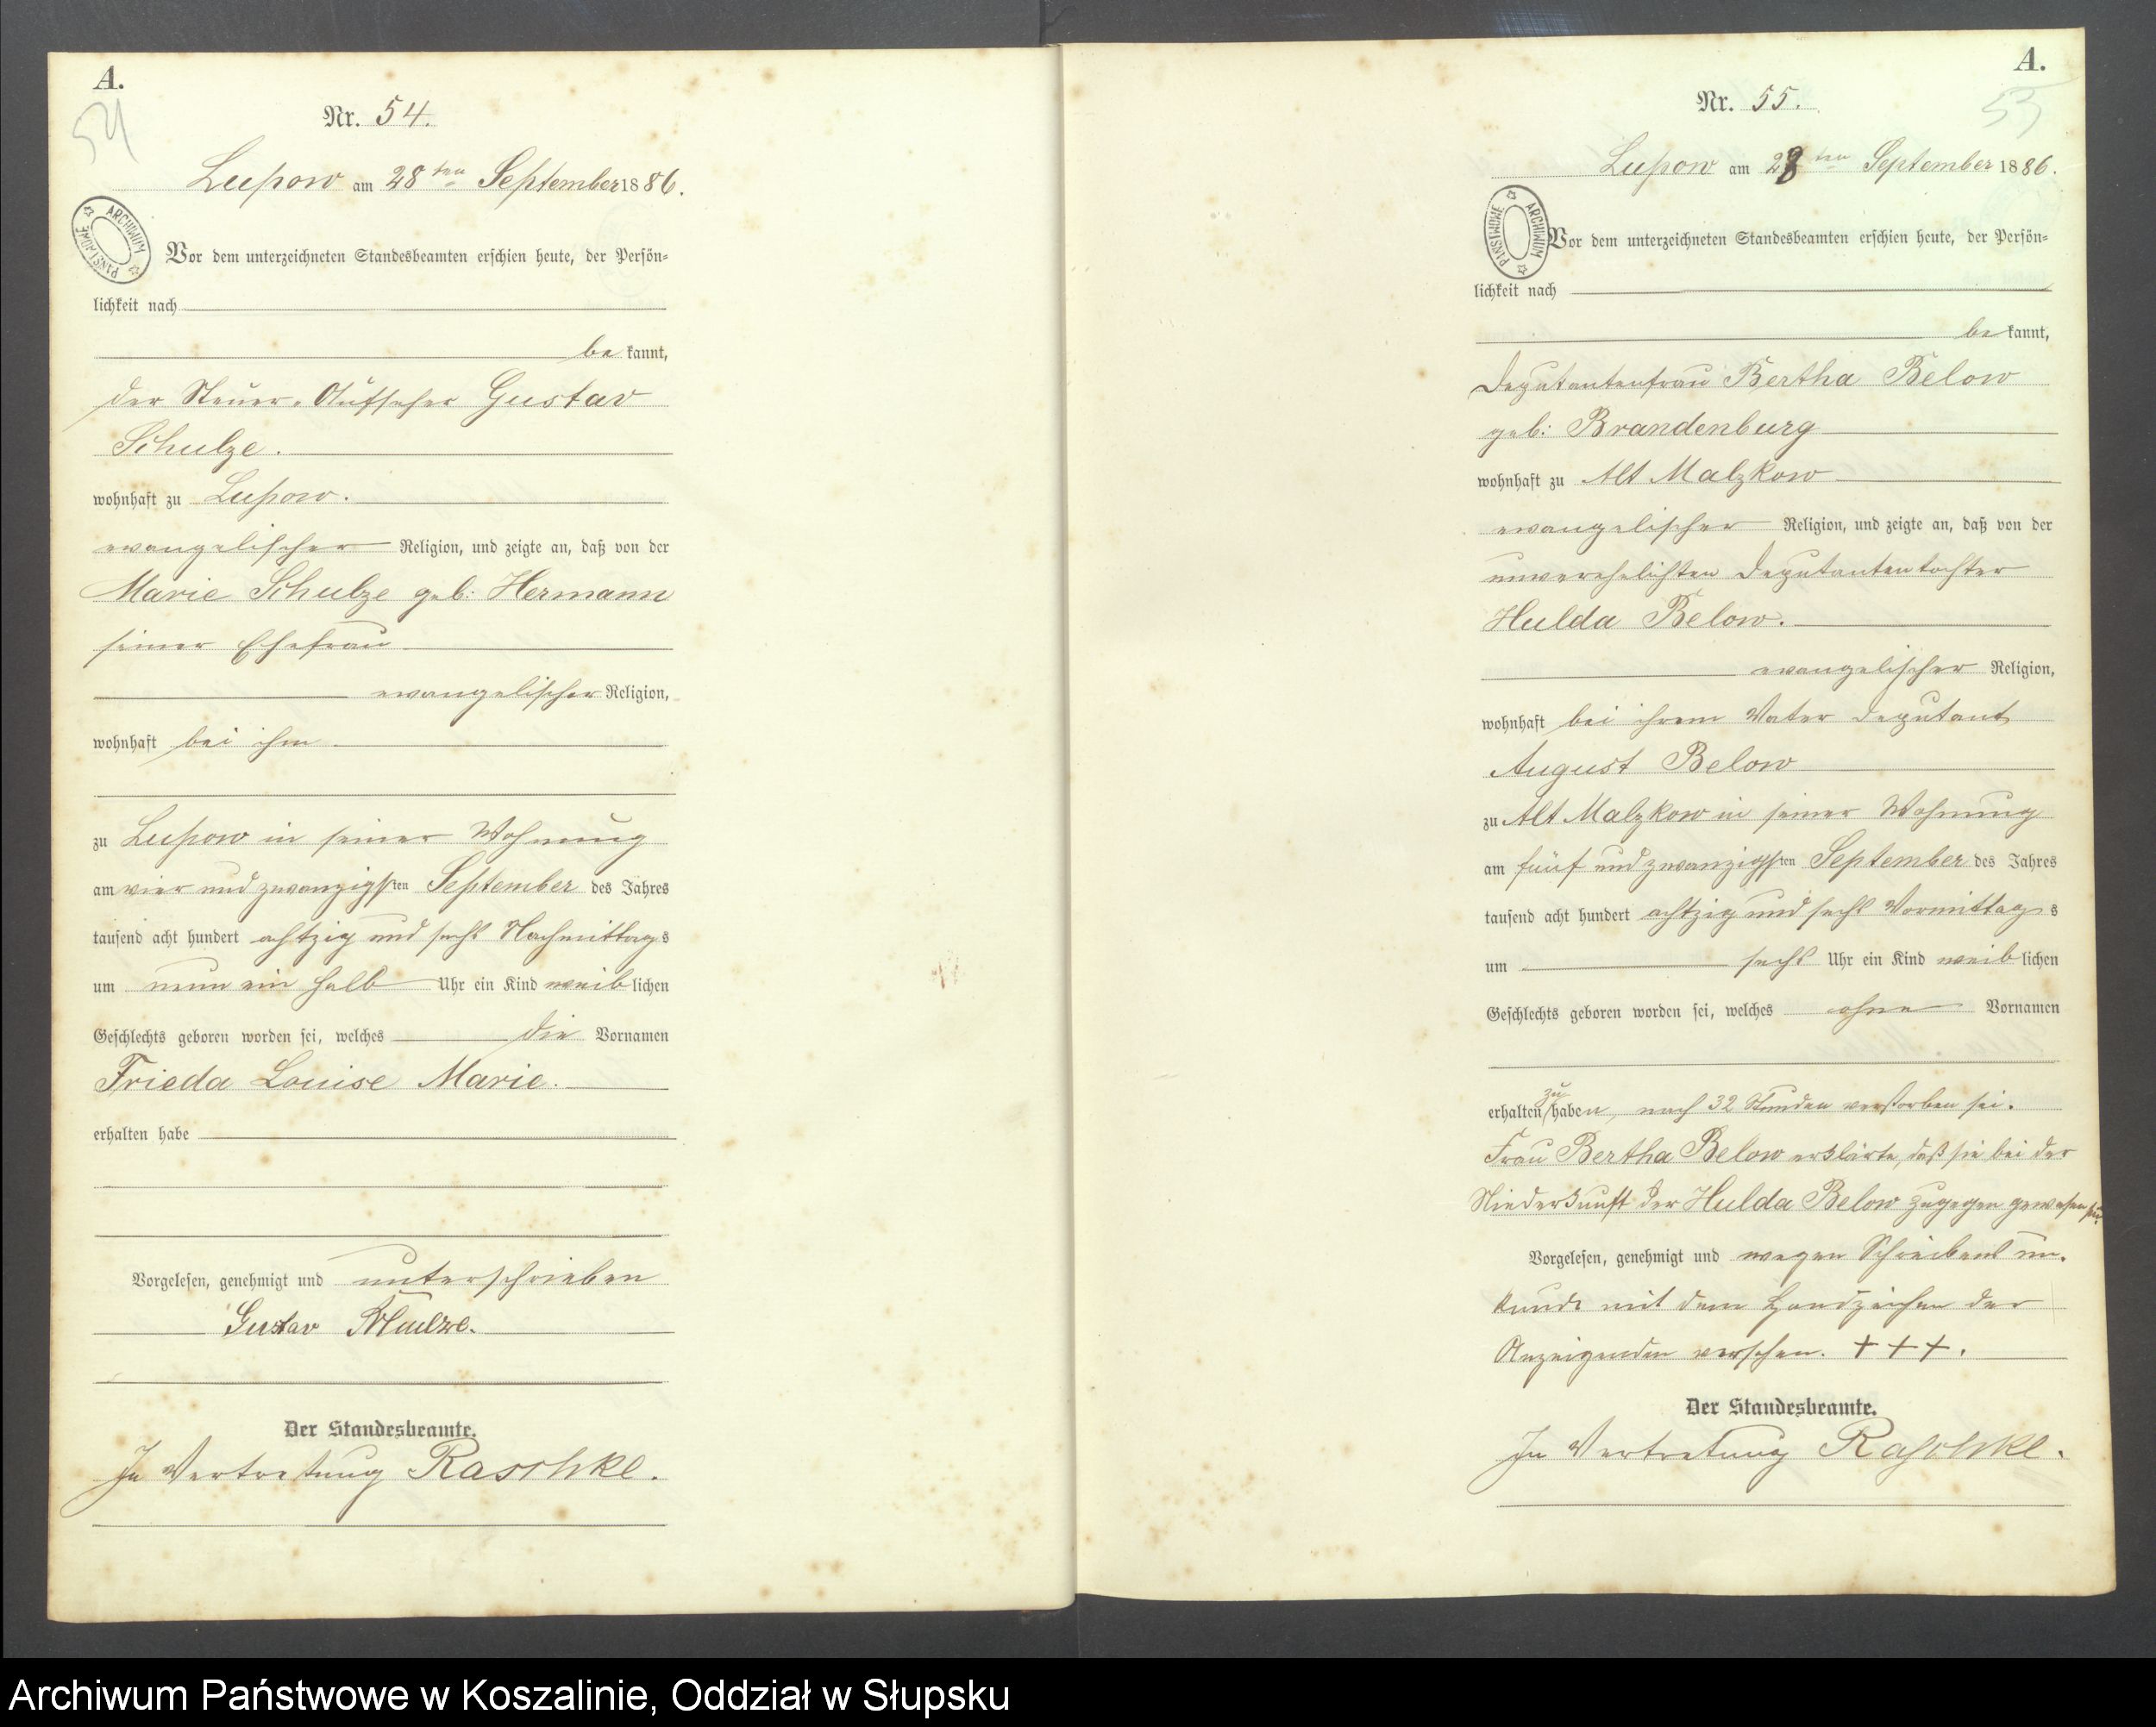 A.
54
Nr. 54.
Lupow am 28ten September 1886.
ARCHIWUM PAŃSTWOWE
Vor dem unterzeichneten Standesbeamten erschien heute, der Persön=
lichkeit nach
be kannt,
der Steuer-Aufseher Gustav
Schulze.
wohnhaft zu Lupow.
evangelischer Religion, und zeigte an, daß von der
Marie Schulze geb: Hermann
seiner Ehefrau
evangelischer Religion,
wohnhaft bei ihm
zu Lupow in seiner Wohnung
am vier und zwanzigsten September des Jahres
tausend acht hundert achtzig und sechs Nachmittags
um neun ein halb Uhr ein Kind weiblichen
Geschlechts geboren worden sei, welches die Vornamen
Frieda Louise Marie.
erhalten habe
Vorgelesen, genehmigt und unterschrieben
Gustav Schulze.
Der Standesbeamte.
In Vertretung Raschke.
A.
55
Nr. 55.
Lupow am 28ten September 1886.
ARCHIWUM PAŃSTWOWE
Vor dem unterzeichneten Standesbeamten erschien heute, der Persön=
lichkeit nach
be kannt,
Deputantenfrau Bertha Below
geb: Brandenburg
wohnhaft zu Alt Malzkow
evangelischer Religion, und zeigte an, daß von der
unverehelichten Deputantentochter
Hulda Below.
evangelischer Religion,
wohnhaft bei ihrem Vater Deputant
August Below
zu Alt Malzkow in seiner Wohnung
am fünf und zwanzigsten September des Jahres
tausend acht hundert achtzig und sechs Vormittags
um sechs Uhr ein Kind weiblichen
Geschlechts geboren worden sei, welches ohne Vornamen
zu
erhalten haben, nach 32 Stunden verstorben sei.
Frau Bertha Below erklärte, daß sie bei der
Niederkunft der Hulda Below zugegen gewesen sei.
Vorgelesen, genehmigt und wegen Schreibens un-
kunde mit dem Handzeichen der
Anzeigenden versehen. + + +.
Der Standesbeamte.
In Vertretung Raschke.
Archiwum Państwowe w Koszalinie, Oddział w Słupsku